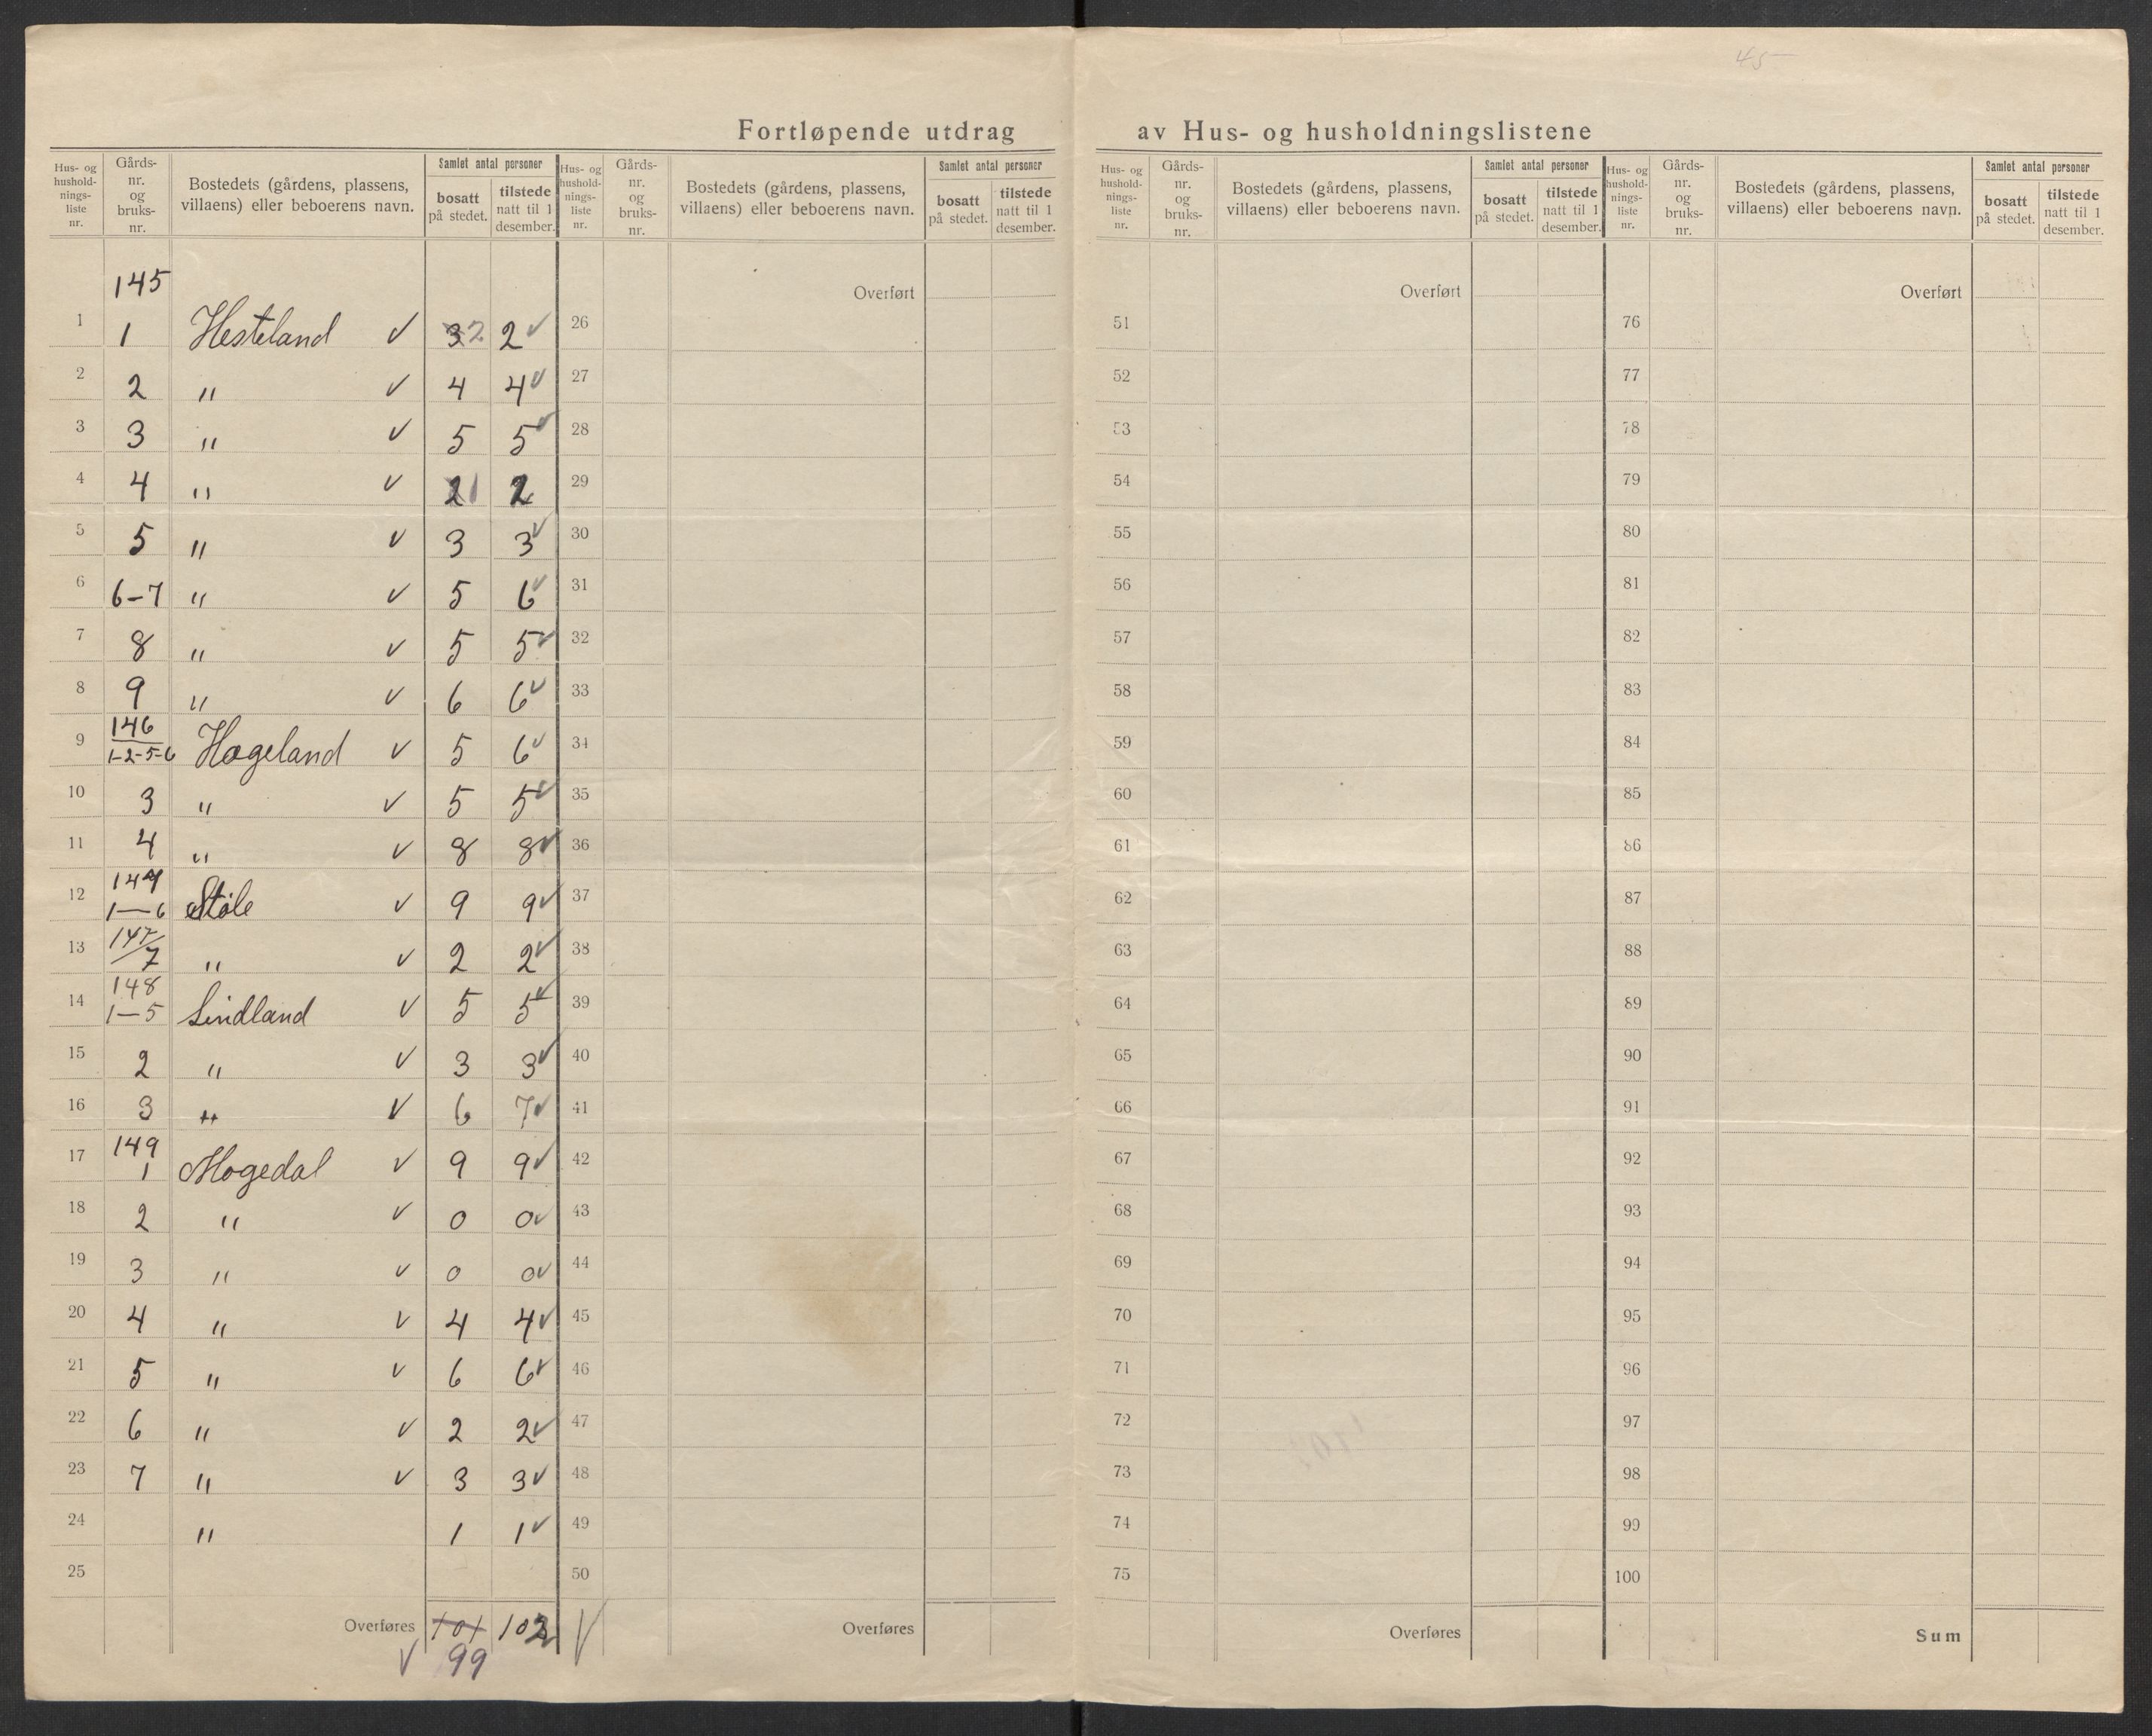 45
Fortløpende utdrag av Hus- og husholdningslistene
Hus- og hushold-nings-liste nr. Gårds-nr. og bruks-nr. Bostedets (gårdens, plassens, villaens) eller beboerens navn. Samlet antal personer bosatt på stedet. tilstede natt til 1 desember.
Hus- og hushold-nings-liste nr. Gårds-nr. og bruks-nr. Bostedets (gårdens, plassens, villaens) eller beboerens navn. Samlet antal personer bosatt på stedet. tilstede natt til 1 desember.
Hus- og hushold-nings-liste nr. Gårds-nr. og bruks-nr. Bostedets (gårdens, plassens, villaens) eller beboerens navn. Samlet antal personer bosatt på stedet. tilstede natt til 1 desember.
Hus- og hushold-nings-liste nr. Gårds-nr. og bruks-nr. Bostedets (gårdens, plassens, villaens) eller beboerens navn. Samlet antal personer bosatt på stedet. tilstede natt til 1 desember.
145 Overført Overført Overført
1 1 Hesteland ✓ 3 2 2 ✓ 26 51 76
2 2 " ✓ 4 4 ✓ 27 52 77
3 3 " ✓ 5 5 ✓ 28 53 78
4 4 " ✓ 2 1 2 29 54 79
5 5 " ✓ 3 3 ✓ 30 55 80
6 6-7 " ✓ 5 6 ✓ 31 56 81
7 8 " ✓ 5 5 ✓ 32 57 82
8 9 " ✓ 6 6 ✓ 33 58 83
9 146 1-2-5-6 Hageland ✓ 5 6 ✓ 34 59 84
10 3 " ✓ 5 5 ✓ 35 60 85
11 4 " ✓ 8 8 ✓ 36 61 86
12 147 1—6 Støle ✓ 9 9 ✓ 37 62 87
13 147/7 " ✓ 2 2 ✓ 38 63 88
14 148 1—5 Lindland ✓ 5 5 ✓ 39 64 89
15 2 " ✓ 3 3 ✓ 40 65 90
16 3 " ✓ 6 7 ✓ 41 66 91
17 149 1 Mogedal ✓ 9 9 ✓ 42 67 92
18 2 " ✓ 0 0 ✓ 43 68 93
19 3 " ✓ 0 0 ✓ 44 69 94
20 4 " ✓ 4 4 ✓ 45 70 95
21 5 " ✓ 6 6 ✓ 46 71 96
22 6 " ✓ 2 2 ✓ 47 72 97
23 7 " ✓ 3 3 ✓ 48 73 98
24 " 1 1 ✓ 49 74 99
25 50 75 100
Overføres 101 102 ✓ Overføres Overføres Sum
✓ 99